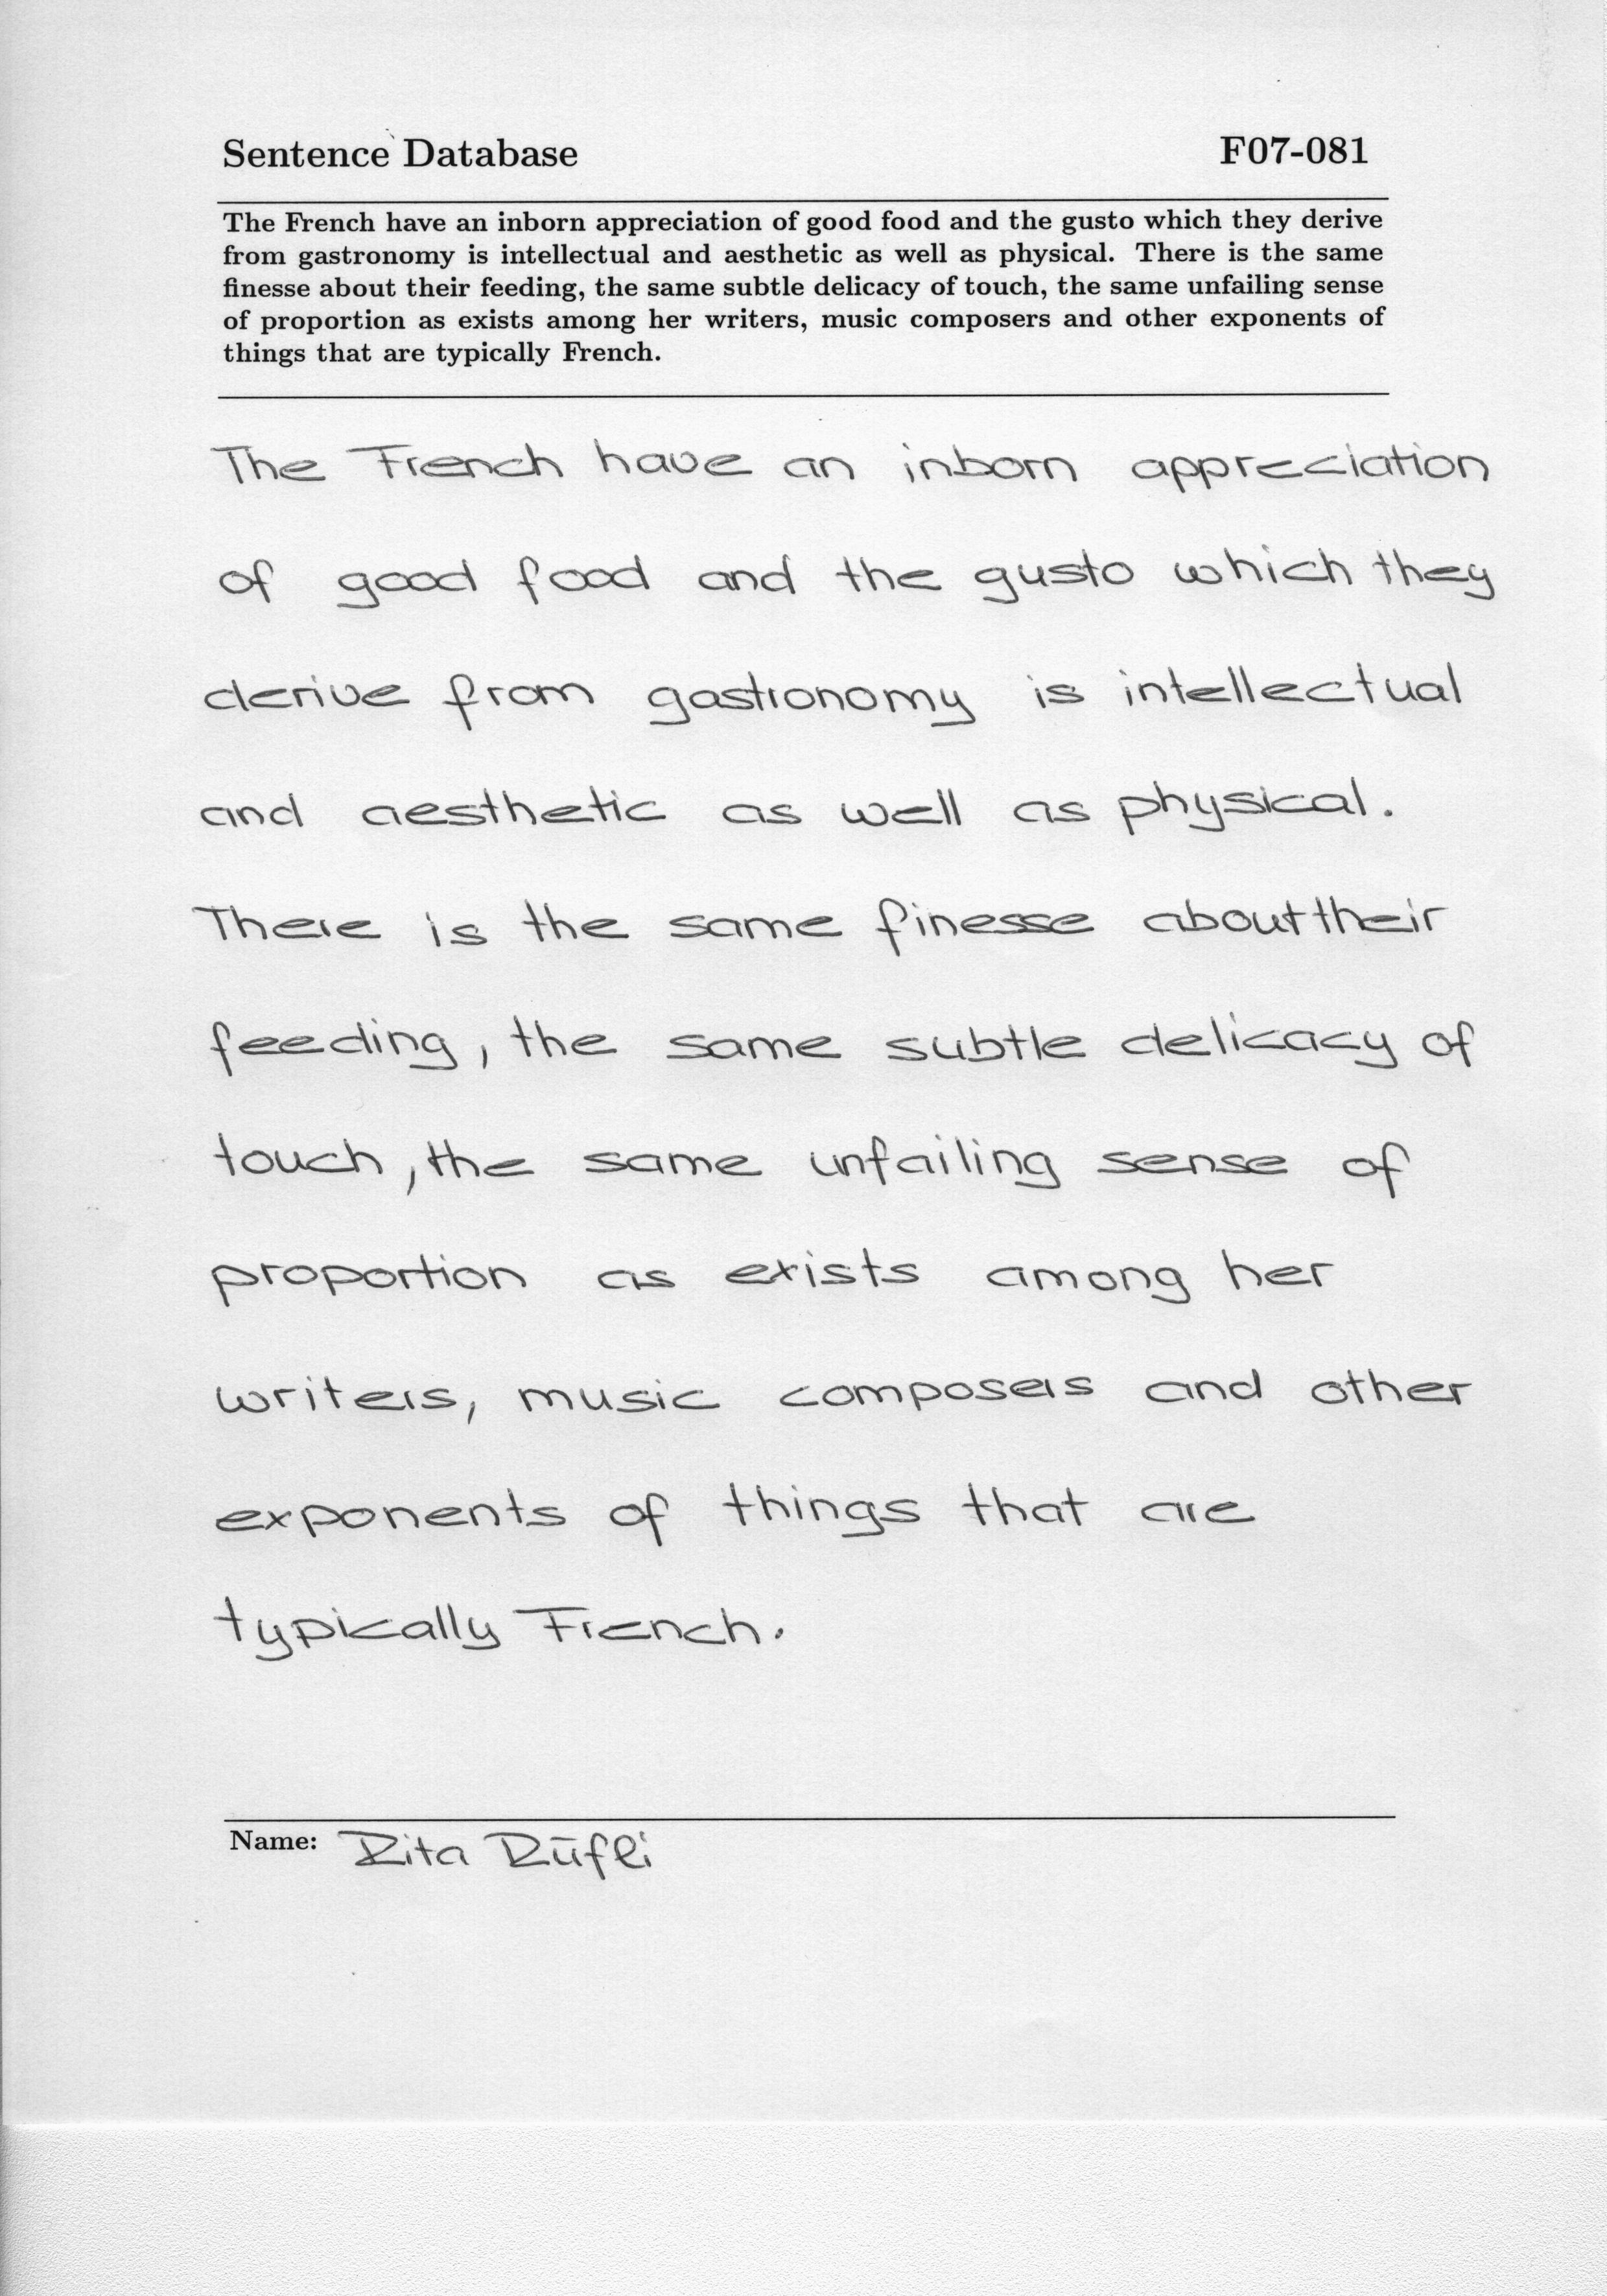 Sentence Database F07-081
The French have an inborn appreciation of good food and the gusto which they derive
from gastronomy is intellectual and aesthetic as well as physical. There is the same
finesse about their feeding, the same subtle delicacy of touch, the same unfailing sense
of proportion as exists among her writers, music composers and other exponents of
things that are typically French.
The French have an inborn appreciation
of good food and the gusto which they
derive from gastronomy is intellectual
and aesthetic as well as physical.
There is the same finesse about their
feeding, the same subtle delicacy of
touch, the same unfailing sense of
proportion as exists among her
writers, music composers and other
exponents of things that are
typically French.
Name: Rita Rüfli